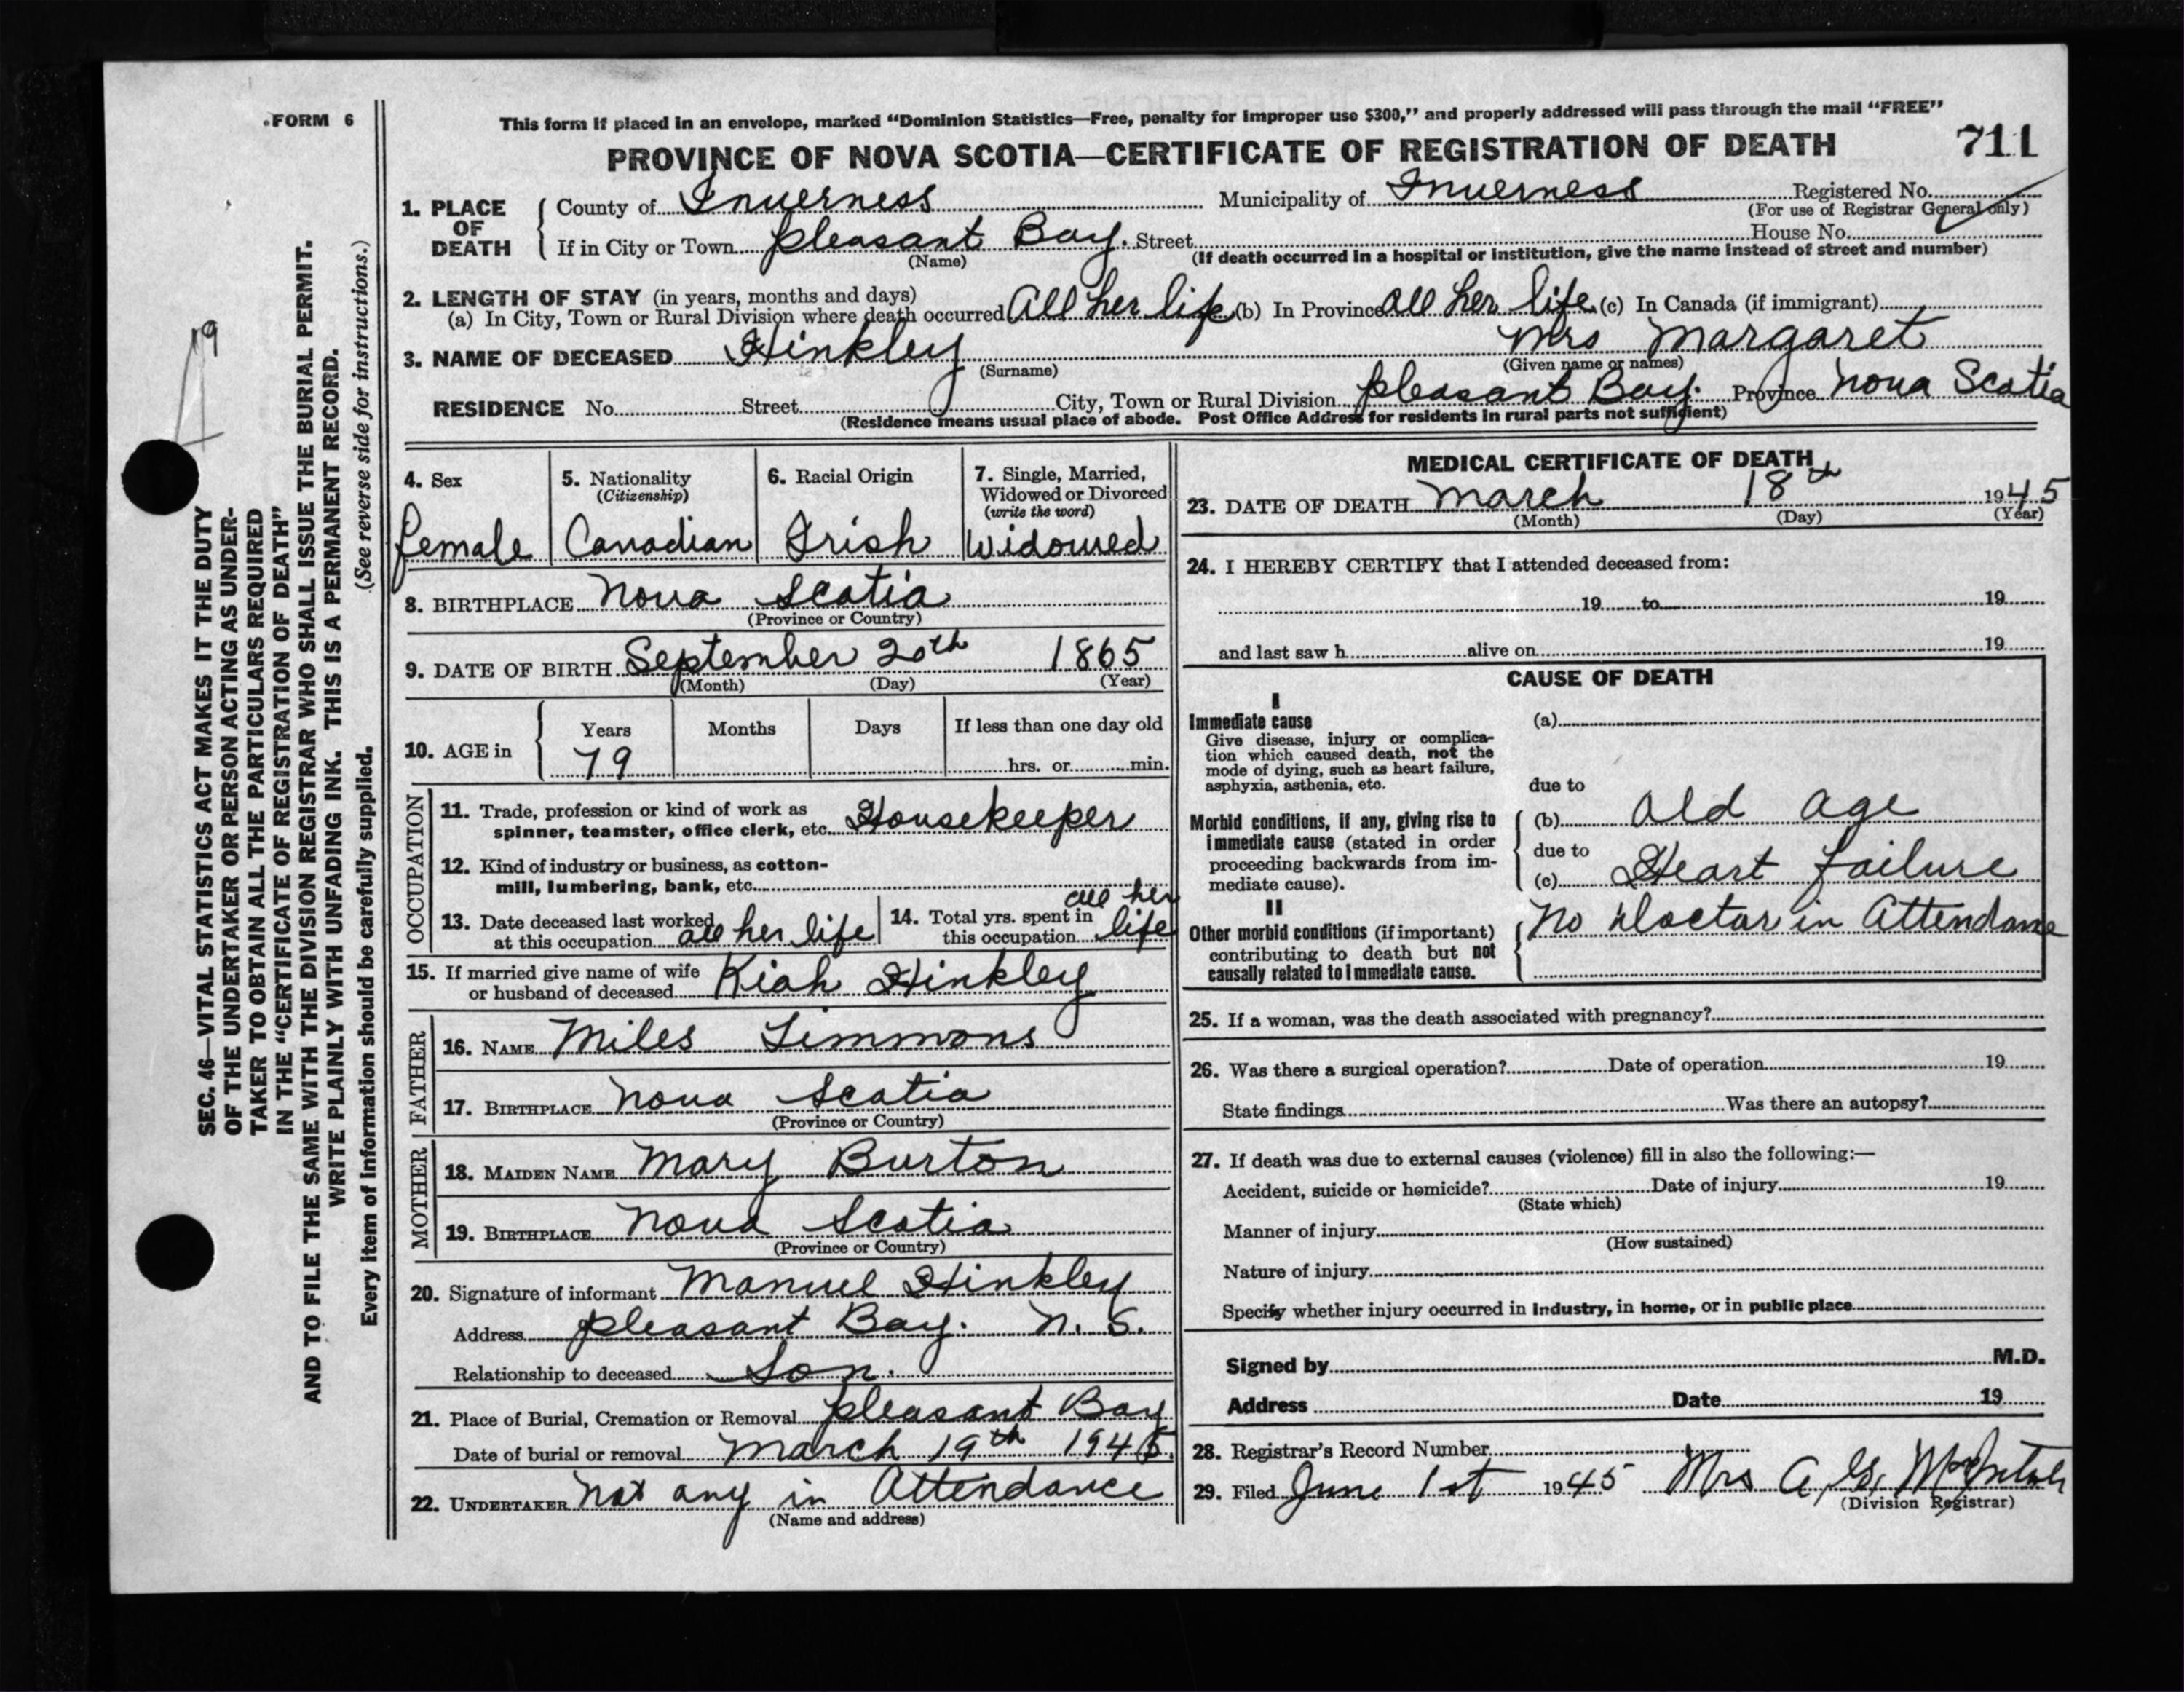 FORM 6
This form if placed in an envelope, marked "Dominion Statistics—Free, penalty for improper use $300," and properly addressed will pass through the mail "FREE"
PROVINCE OF NOVA SCOTIA—CERTIFICATE OF REGISTRATION OF DEATH
711
1. PLACE OF DEATH
County of Inverness Municipality of Inverness Registered No.
(For use of Registrar General only)
If in City or Town Pleasant Bay. Street House No.
(Name) (If death occurred in a hospital or institution, give the name instead of street and number)
2. LENGTH OF STAY (in years, months and days)
(a) In City, Town or Rural Division where death occurred All her life (b) In Province All her life (c) In Canada (if immigrant)
3. NAME OF DECEASED Hinkley Mrs Margaret
(Surname) (Given name or names)
RESIDENCE No. Street City, Town or Rural Division Pleasant Bay. Province Nova Scotia
(Residence means usual place of abode. Post Office Address for residents in rural parts not sufficient)
4. Sex
female
5. Nationality
(Citizenship)
Canadian
6. Racial Origin
Irish
7. Single, Married,
Widowed or Divorced
(write the word)
Widowed
8. BIRTHPLACE Nova Scotia
(Province or Country)
9. DATE OF BIRTH September 20th 1865
(Month) (Day) (Year)
10. AGE in
Years Months Days If less than one day old
79 hrs. or min.
OCCUPATION
11. Trade, profession or kind of work as
spinner, teamster, office clerk, etc. Housekeeper
12. Kind of industry or business, as cotton-
mill, lumbering, bank, etc.
13. Date deceased last worked
at this occupation all her life
14. Total yrs. spent in all her
this occupation life
15. If married give name of wife
or husband of deceased Kiah Hinkley
FATHER
16. NAME Miles Timmons
17. BIRTHPLACE Nova Scotia
(Province or Country)
MOTHER
18. MAIDEN NAME Mary Burton
19. BIRTHPLACE Nova Scotia
(Province or Country)
20. Signature of informant Manuel Hinkley
Address Pleasant Bay. N. S.
Relationship to deceased Son.
21. Place of Burial, Cremation or Removal Pleasant Bay
Date of burial or removal March 19th 1945.
22. UNDERTAKER Not any in Attendance
(Name and address)
MEDICAL CERTIFICATE OF DEATH
23. DATE OF DEATH March 18th 1945
(Month) (Day) (Year)
24. I HEREBY CERTIFY that I attended deceased from:
19 to 19
and last saw h alive on 19
CAUSE OF DEATH
I
Immediate cause
Give disease, injury or complica-
tion which caused death, not the
mode of dying, such as heart failure,
asphyxia, asthenia, etc.
(a)
due to
Morbid conditions, if any, giving rise to
immediate cause (stated in order
proceeding backwards from im-
mediate cause).
(b) Old Age
due to
(c) Heart failure
II
Other morbid conditions (if important)
contributing to death but not
causally related to immediate cause.
No Doctor in Attendance
25. If a woman, was the death associated with pregnancy?
26. Was there a surgical operation? Date of operation 19
State findings Was there an autopsy?
27. If death was due to external causes (violence) fill in also the following:—
Accident, suicide or homicide? Date of injury 19
(State which)
Manner of injury
(How sustained)
Nature of injury
Specify whether injury occurred in industry, in home, or in public place
Signed by M.D.
Address Date 19
28. Registrar's Record Number
29. Filed June 1st 1945 Mrs A. G. McIntosh
(Division Registrar)
SEC. 46—VITAL STATISTICS ACT MAKES IT THE DUTY
OF THE UNDERTAKER OR PERSON ACTING AS UNDER-
TAKER TO OBTAIN ALL THE PARTICULARS REQUIRED
IN THE "CERTIFICATE OF REGISTRATION OF DEATH"
AND TO FILE THE SAME WITH THE DIVISION REGISTRAR WHO SHALL ISSUE THE BURIAL PERMIT.
WRITE PLAINLY WITH UNFADING INK. THIS IS A PERMANENT RECORD.
Every item of information should be carefully supplied. (See reverse side for instructions.)